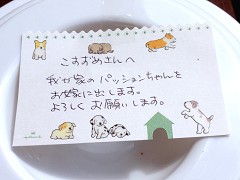 こすずめさんへ
我が家のパッションちゃんを
お嫁に出します。
よろしくお願いします。